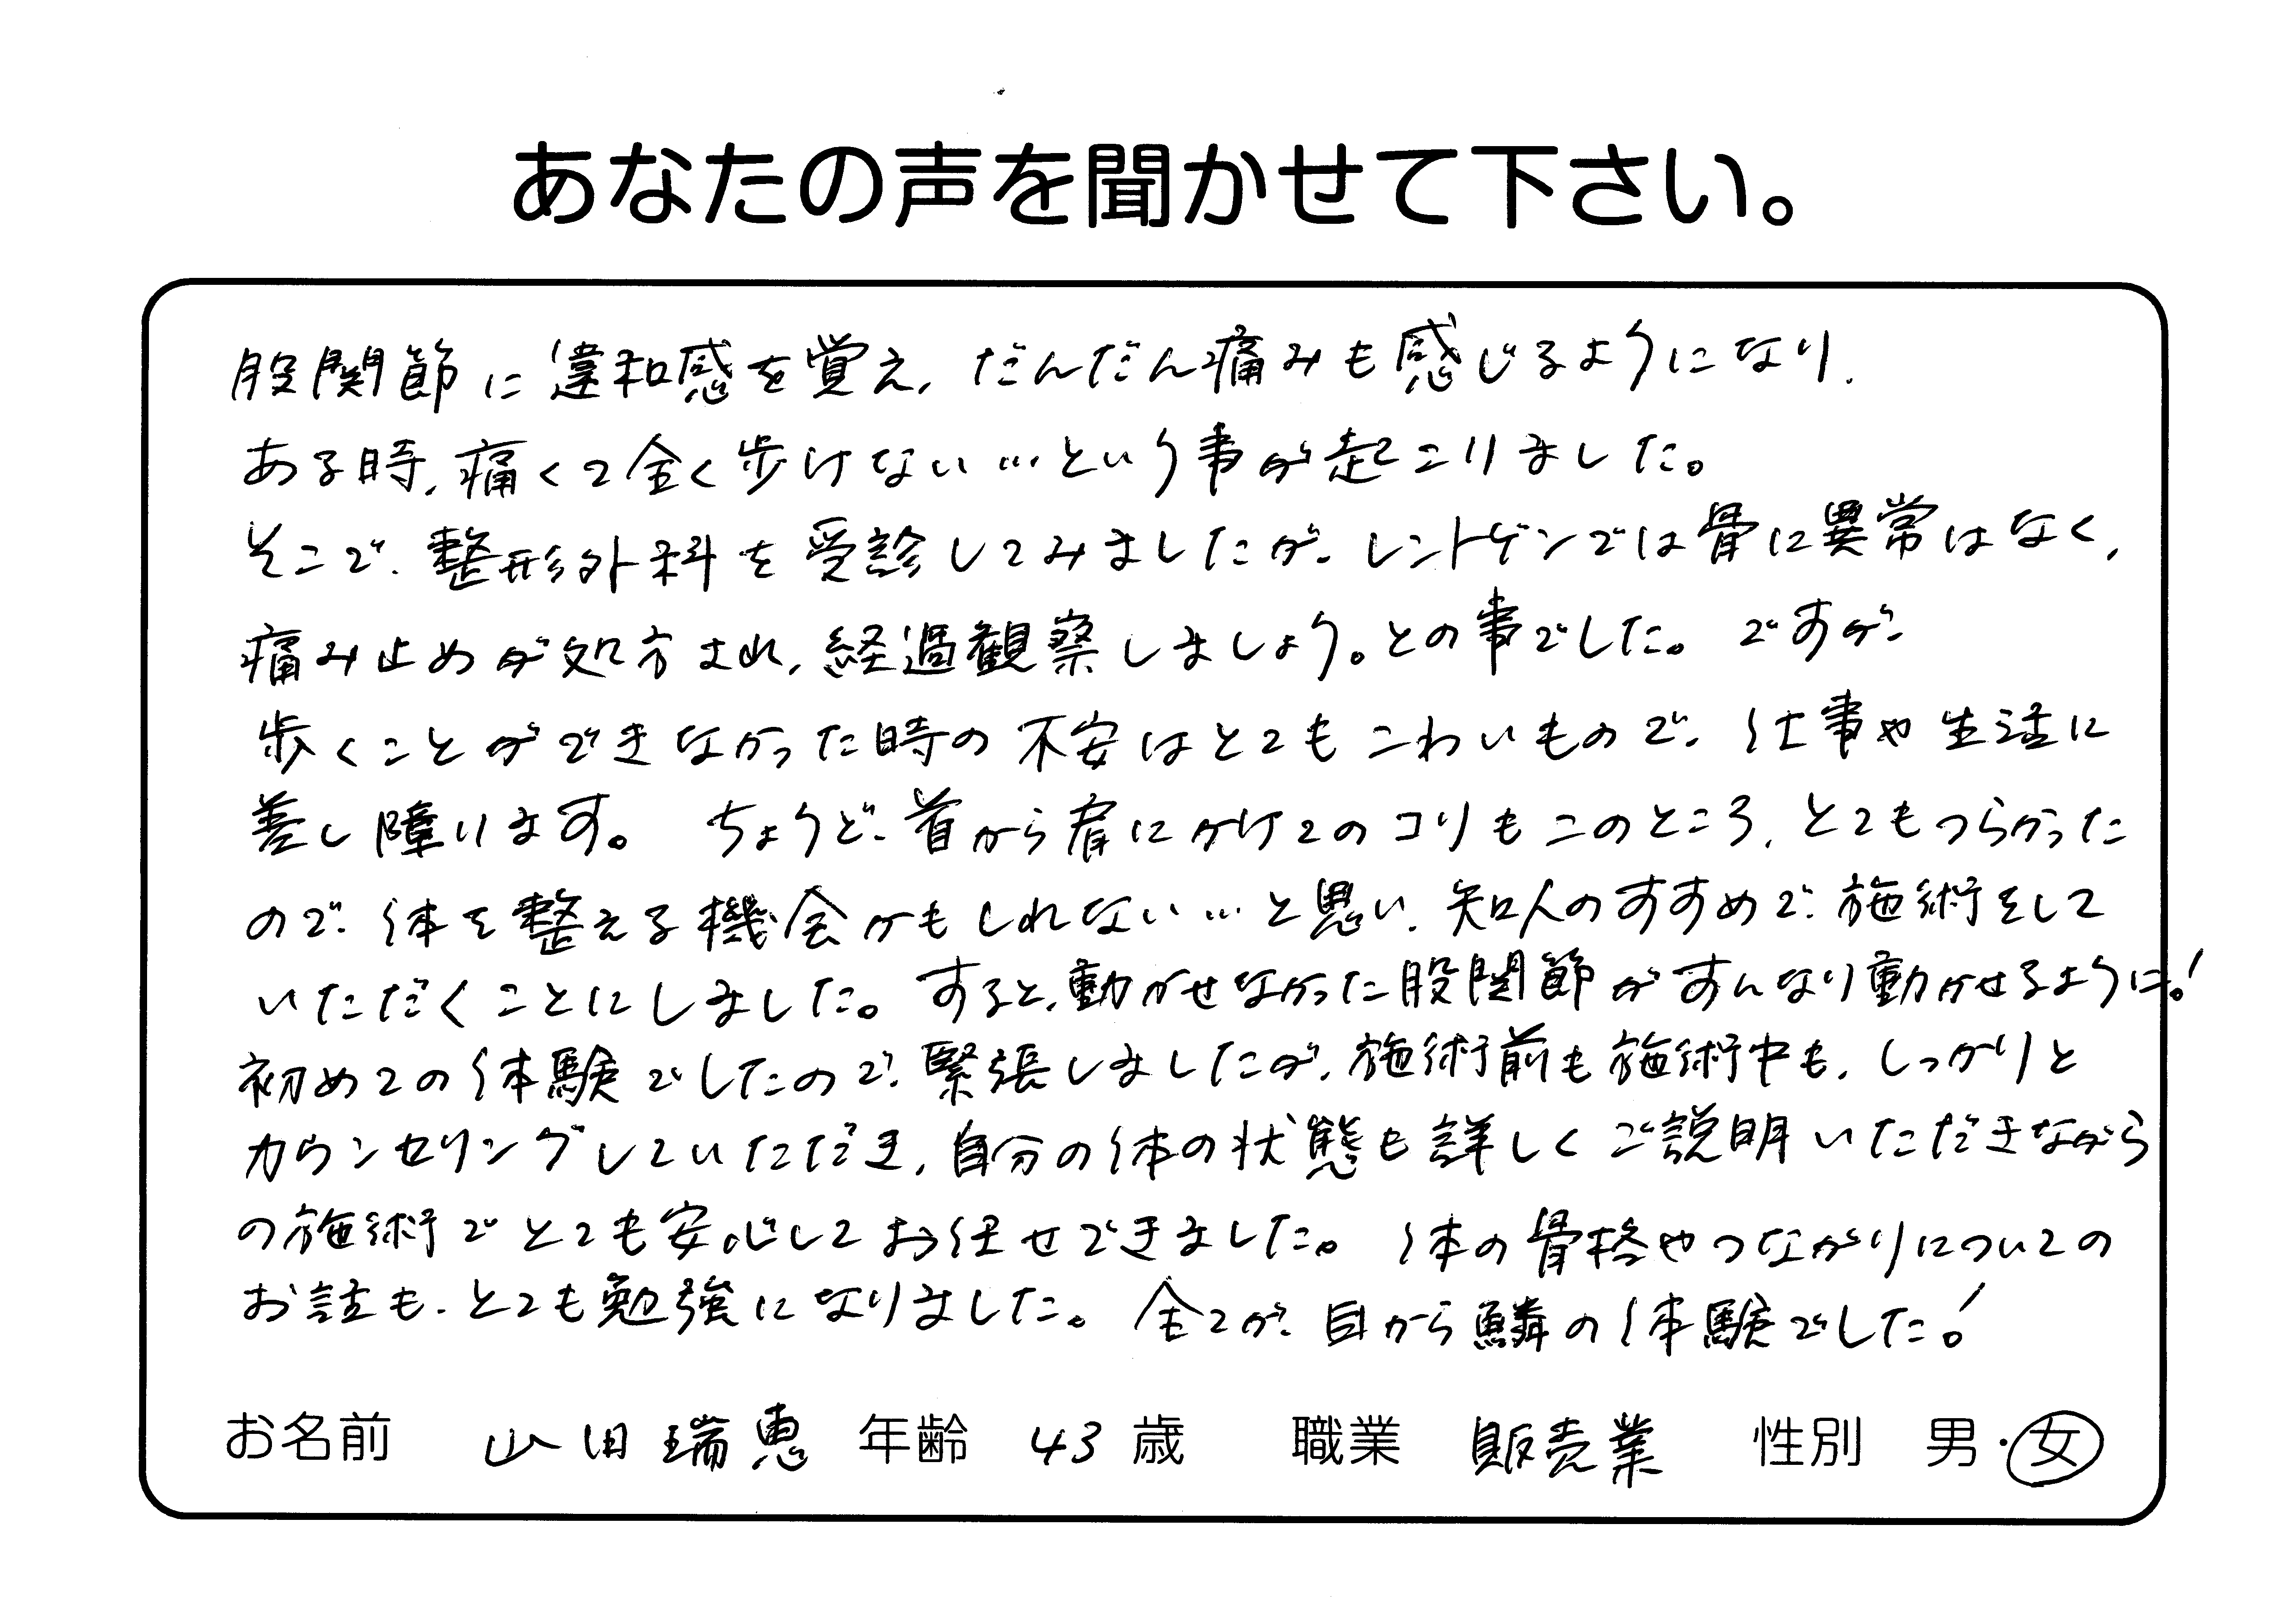 あなたの声を聞かせて下さい。
股関節に違和感を覚え、だんだん痛みも感じるようになり、
ある時、痛くて全く歩けない…という事が起こりました。
そこで、整形外科を受診してみましたが、レントゲンでは骨に異常はなく、
痛み止めが処方され、経過観察しましょう。との事でした。ですが
歩くことができなかった時の不安はとてもこわいもので、仕事や生活に
差し障ります。ちょうど、首から肩にかけてのコリもこのところ、とてもつらかった
ので、体を整える機会かもしれない…と思い、知人のすすめで、施術をして
いただくことにしました。すると、動かせなかった股関節がすんなり動かせるように!
初めての体験でしたので、緊張しましたが、施術前も施術中も、しっかりと
カウンセリングしていただき、自分の体の状態も詳しくご説明いただきながら
の施術でとても安心してお任せできました。体の骨格やつながりについての
お話も、とても勉強になりました。全てが、目から鱗の体験でした!
お名前 山田瑞恵 年齢 43 歳 職業 販売業 性別 男・女